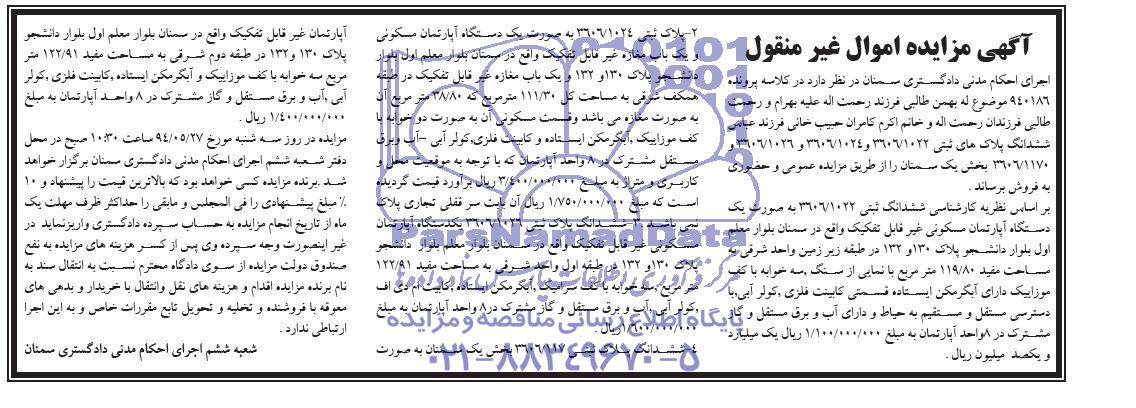 آگهی مزایده اموال غیر منقول
اجرای احکام مدنی دادگستری سمنان در نظر دارد در کلاسه پرونده
۹۴۰۱۸۶ موضوع له بهمن طالبی فرزند رحمت اله علیه بهرام و رحمت
طالبی فرزندان رحمت اله و خانم اکرم کامران حبیب خانی فرزند عباس
ششدانگ پلاک های ثبتی ۳۶۰۶/۱۰۲۲ و۳۶۰۶/۱۰۲۴ و ۳۶۰۶/۱۰۲۶ و
۳۶۰۶/۱۱۷۰ بخش یک سمنان را از طریق مزایده عمومی و حضوری
به فروش برساند .
بر اساس نظریه کارشناسی ششدانگ ثبتی ۳۶۰۶/۱۰۲۲ به صورت یک
دستگاه آپارتمان مسکونی غیر قابل تفکیک واقع در سمنان بلوار معلم
اول بلوار دانشجو پلاک ۱۳۰و ۱۳۲ در طبقه زیر زمین واحد شرقی به
مساحت مفید ۱۱۹/۸۰ متر مربع با نمایی از سنگ ,سه خوابه با کف
موزاییک دارای آبگرمکن ایستاده قسمتی کابینت فلزی ,کولر آبی,با
دسترسی مستقل و مستقیم به حیاط و دارای آب و برق مستقل و گاز
مشترک در ۸واحد آپارتمان به مبلغ ۱/۱۰۰/۰۰۰/۰۰۰ ریال یک میلیارد
و یکصد میلیون ریال .
۲-پلاک ثبتی ۳۶۰۶/۱۰۲۴ به صورت یک دستگاه آپارتمان مسکونی
و یک باب مغازه غیر قابل تفکیک واقع در سمنان بلوار معلم اول بلوار
دانشجو پلاک ۱۳۰و ۱۳۲ و یک باب مغازه غیر قابل تفکیک در طبقه
همکف شرقی به مساحت کل ۱۱۱/۳۰ مترمربع که ۳۸/۸۰ متر مربع آن
به صورت مغازه می باشد وقسمت مسکونی آن به صورت دو خوابه با
کف موزاییک ,آبگرمکن ایستاده و کابینت فلزی,کولر آبی –آب وبرق
مستقل مشترک در ۸ واحد آپارتمان که با توجه به موقعیت محل و
کاربری و متراژ به مبلغ ۳/۴۰۰/۰۰۰/۰۰۰ ریال برآورد قیمت گردیده
است که مبلغ ۱/۷۵۰/۰۰۰/۰۰۰ ریال آن بابت سر قفلی تجاری پلاک
نمی باشد ۳-ششدانگ پلاک ثبتی ۳۶۰۶/۱۰۲۶ یکدستگاه آپارتمان
مسکونی غیر قابل تفکیک واقع در سمنان بلوار معلم بلوار دانشجو
پلاک ۱۳۰و ۱۳۲ در طبقه اول واحد شرقی به مساحت مفید ۱۲۲/۹۱
متر مربع ,سه خوابه با کف سرامیک ,آبگرمکن ایستاده ,کابینت ام دی اف
,کولر آبی ,آب و برق مستقل و گاز مشترک در۸ واحد آپارتمان به مبلغ
۱/۶۰۰/۰۰۰/۰۰۰ریال
۴-ششدانگ پلاک ثبتی ۳۶۰۶/۱۱۷ بخش یک سمنان به صورت
آپارتمان غیر قابل تفکیک واقع در سمنان بلوار معلم اول بلوار دانشجو
پلاک ۱۳۰ و۱۳۲ در طبقه دوم شرقی به مساحت مفید ۱۲۲/۹۱ متر
مربع سه خوابه با کف موزاییک و آبگرمکن ایستاده ,کابینت فلزی ,کولر
آبی ,آب و برق مستقل و گاز مشترک در ۸ واحد آپارتمان به مبلغ
۱/۴۰۰/۰۰۰/۰۰۰ ریال .
مزایده در روز سه شنبه مورخ ۹۴/۰۵/۲۷ ساعت ۱۰:۳۰ صبح در محل
دفتر شعبه ششم اجرای احکام مدنی دادگستری سمنان برگزار خواهد
شد .برنده مزایده کسی خواهد بود که بالاترین قیمت را پیشنهاد و ۱۰
٪ مبلغ پیشنهادی را فی المجلس و مابقی را حداکثر ظرف مهلت یک
ماه از تاریخ انجام مزایده به حساب سپرده دادگستری واریزنماید در
غیر اینصورت وجه سپرده وی پس از کسر هزینه های مزایده به نفع
صندوق دولت مزایده از سوی دادگاه محترم نسبت به انتقال سند به
نام برنده مزایده اقدام و هزینه های نقل وانتقال با خریدار و بدهی های
معوقه با فروشنده و تخلیه و تحویل تابع مقررات خاص و به این اجرا
ارتباطی ندارد .
شعبه ششم اجرای احکام مدنی دادگستری سمنان
ParsNamadData
پایگاه اطلاع رسانی مناقصه و مزایده
۰۲۱-۸۸۳۴۹۶۷۰-۵